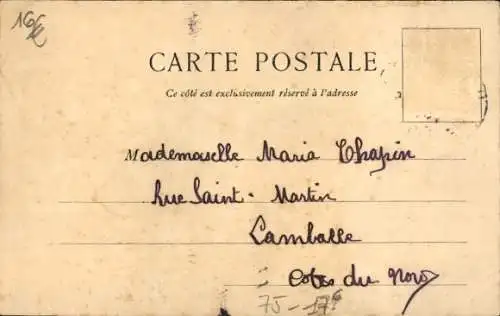 CARTE POSTALE
Ce côté est exclusivement réservé à l'adresse
Mademoiselle Maria Chapin
Rue Saint-Martin
Lamballe
Cotes du Nord
75-176